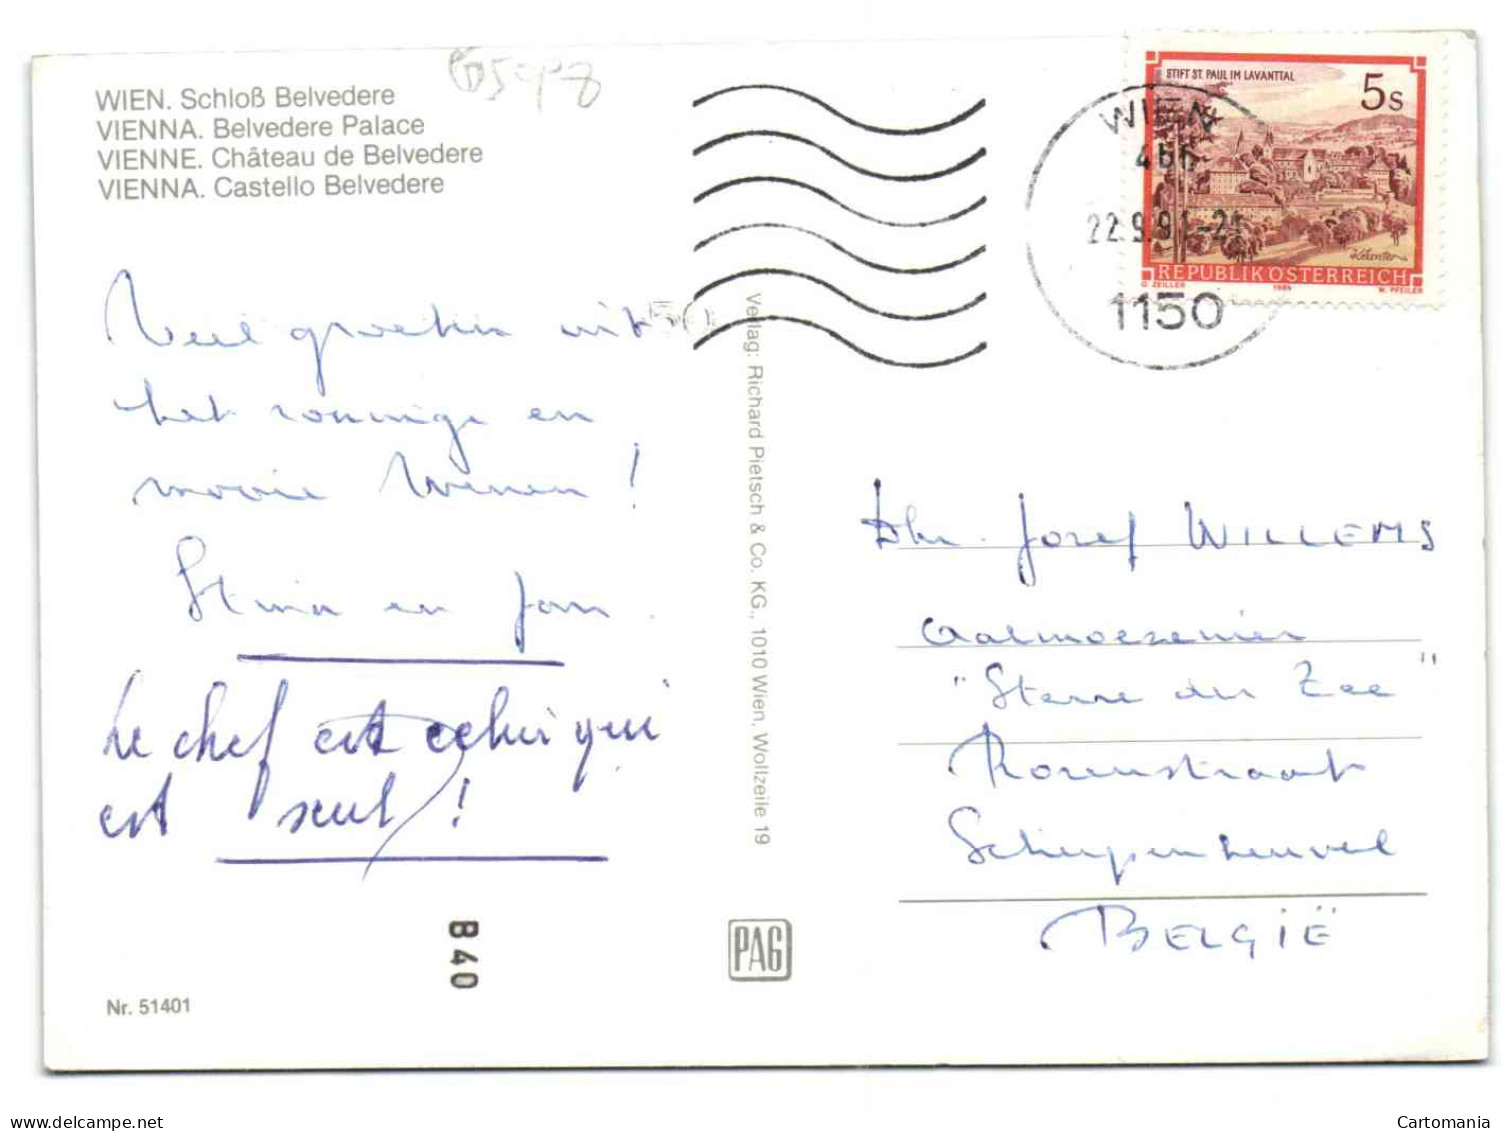 WIEN. Schloß Belvedere
VIENNA. Belvedere Palace
VIENNE. Château de Belvedere
VIENNA. Castello Belvedere
Veel groeten uit
het zonnige en
mooie Wenen!
Stina en Jan.
Le chef est celui qui
est seul!
B40
Nr. 51401
Verlag: Richard Pietsch & Co. KG., 1010 Wien, Wollzeile 19
PAG
STIFT ST. PAUL IM LAVANTTAL
5s
REPUBLIK ÖSTERREICH
O. ZEILLER 1985 W. PFEILER
WIEN
22.9.91-21
1150
Dhr. Jozef WILLEMS
Aalmoezenier
"Sterre der Zee"
Rozenstraat
Scherpenheuvel
BELGIË
Cartomania